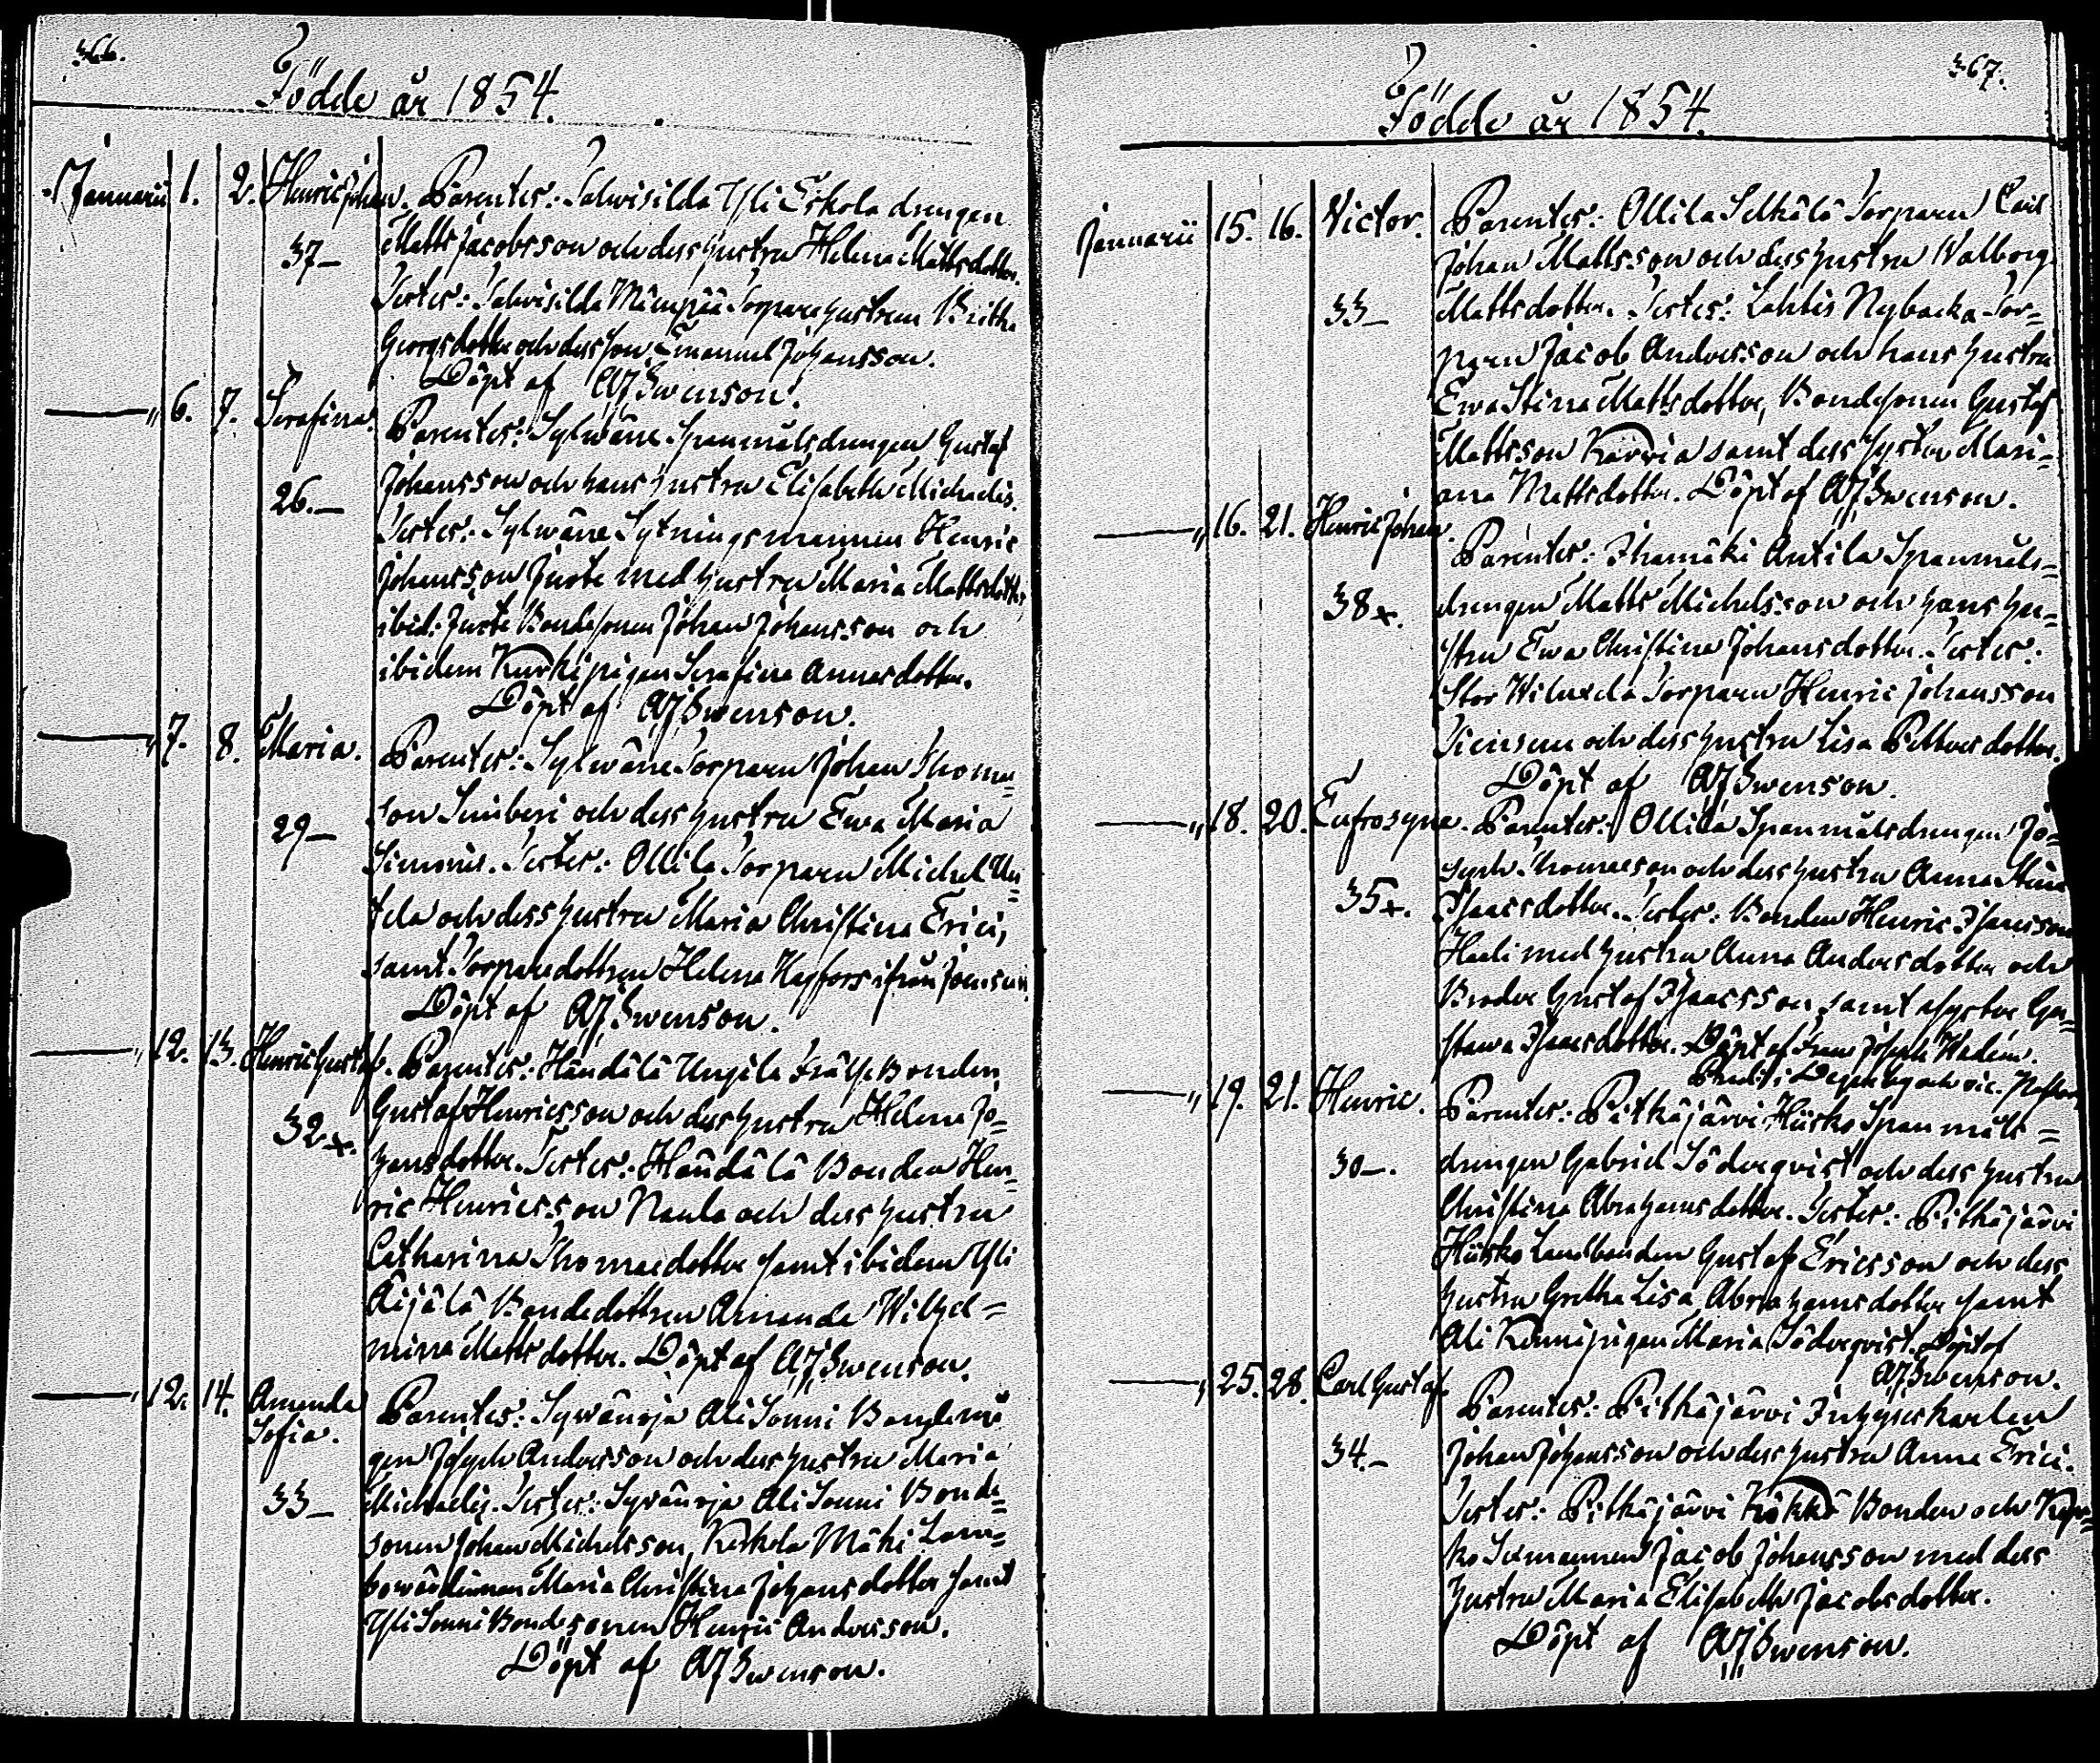 366.
Födde år 1854.
Januarii 1. 2. Henric Johan. Parentes: Salwisilda Yli Eskola drengen
Matts Jacobsson och dess hustru Helena Mattsdotter.
37—
Testes: Salwisilda Mänpää Torpare hustrun Britha
Georgsdotter och dess son Emanuel Johansson.
Döpt af AJSwenson.
—„ 6. 7. Serafina. Parentes: Sylwäne Spanmålsdrengen Gustaf
Johansson och hans hustru Elisabeth Michaelis.
26.—
Testes: Sylwäne Sytningsmannen Henric
Johansson Juste med hustru Maria Mattsdotter,
ibid: Juste Bondesonen Johan Johansson och
ibidem Kurki pigan Serafina Annasdotter.
Döpt af AJSwenson.
—„ 7. 8. Maria. Parentes: Sylwäne Torparen Johan Thomas=
son och dess hustru Ewa Maria
29—
Simonis. Testes: Ollila Torparen Michel
och dess hustru Maria Christina Erici,
samt Torparedottren Helena ifrån Joensuu.
Döpt af AJSwenson.
—„ 12. 13. Henric Gustaf. Parentes: Händälä Ungila Frälse Bonden
Gustaf Henricsson och dess hustru Helena Jo=
32x.
hansdotter. Testes: Händälä Bonden Hen=
ric Henricsson Naula och dess hustru
Catharina Thomasdotter samt ibidem Yli
Äijälä Bondedottren Amanda Wilhel=
mina Mattsdotter. Döpt af AJSwenson.
—„ 12. 14. Amanda
Sofia. Parentes: Sywänoja Ali Sonni Bondemå
gen Joseph Andersson och dess hustru Maria
33—
Michaelis. Testes: Sywänoja Ali Sonni Bonde=
sonen Johan Michelsson, Keskola Mäki
Maria Christina Johansdotter samt
Yli Sonni Bondesonen Henric Andersson.
Döpt af AJSwenson.
367.
Födde år 1854.
Januarii 15. 16. Victor. Parentes: Ollila Selkälä Torparen Carl
Johan Mattsson och dess hustru Walborg
33—
Mattsdotter. Testes: Lahtis Nybacka Tor=
paren Jacob Andersson och hans hustru
Ewa Stina Mattsdotter, Bondesonen Gustaf
Mattsson Karvia samt dess syster Mari=
ana Mattsdotter. Döpt af AJSwenson.
—„ 16. 21. Henric Johan. Parentes: Ihamäki Antila Spanmåls=
38x.
drengen Matts Michelsson och hans hu=
stru Ewa Christina Johansdotter. Testes:
Stor Torparen Henric Johansson
och dess hustru Lisa Pettersdotter.
Döpt af AJSwenson.
—„ 18. 20. Eufrosyna. Parentes: Ollila Spanmålsdrengen Jo=
seph Thomasson och dess hustru Anna Stina
35x.
Isaacsdotter. Testes: Bonden Henric Isaacsson
Hali med hustru Anna Andersdotter och
Broder Gustaf Isaacsson samt syster Gu=
stawa Isaacsdotter. Döpt af Joseph
—„ 19. 21. Henric. Parentes: Pitkäjärvi Hiisko Spanmåls=
30—.
drengen Gabriel Söderqvist och dess hustru
Christina Abrahamsdotter. Testes: Pitkäjärvi
Hiisko Landbonden Gustaf Ericsson och dess
hustru Gretha Lisa Abrahamsdotter samt
Ali Kenni pigan Maria Söderqvist. Döpt af
AJSwenson.
—„ 25. 28. Carl Gustaf. Parentes: Pitkäjärvi Inhyseskarlen
34.—
Johan Johansson och dess hustru Anna Erici.
Testes: Pitkäjärvi Kökkö Bonden och
Jacob Johansson med dess
hustru Maria Elisabeth Jacobsdotter.
Döpt af AJSwenson.